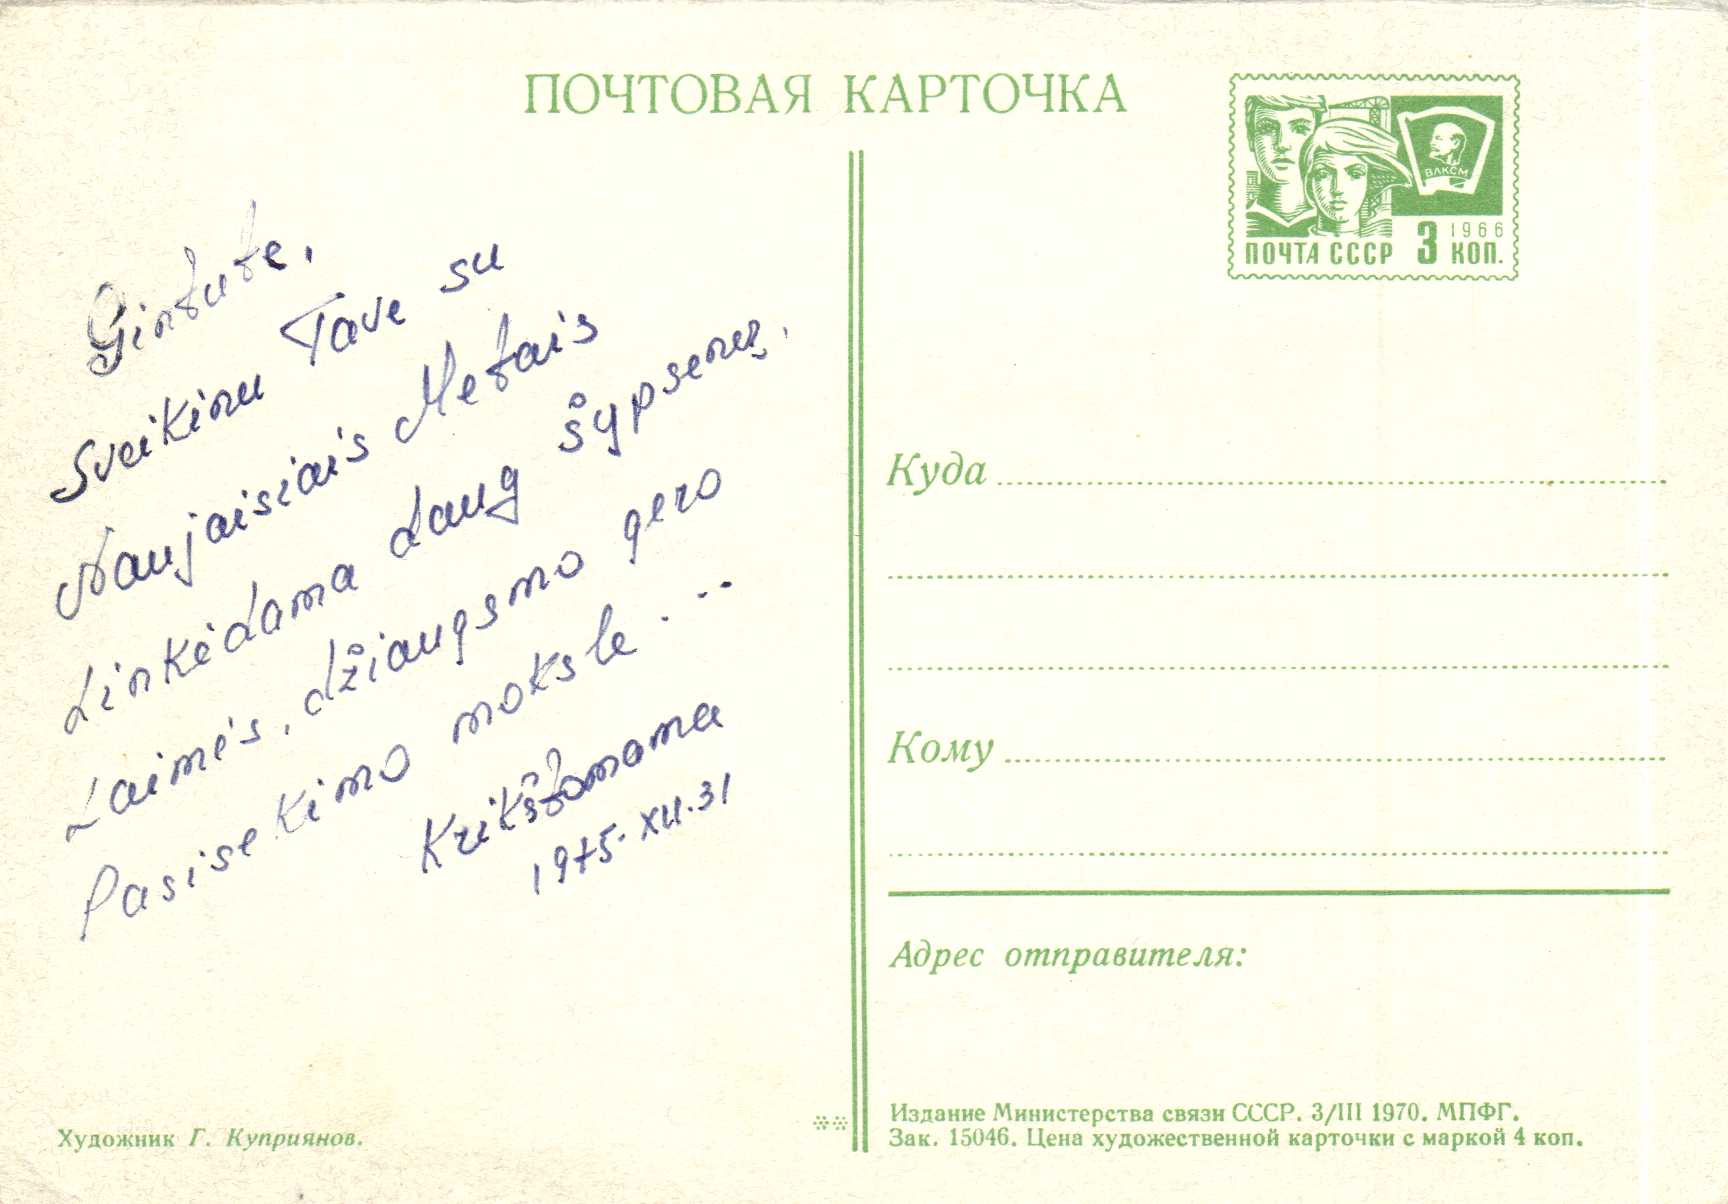 ПОЧТОВАЯ КАРТОЧКА
ВЛКСМ
1966
ПОЧТА СССР 3 КОП.
Gintute,
Sveikinu Tave su
Naujaisiais Metais
Linkėdama daug šypsenų,
Laimės, džiaugsmo gero
Pasisekimo moksle...
Krikštomama
1975.XII.31
Куда
Кому
Адрес отправителя:
Издание Министерства связи СССР. 3/III 1970. МПФГ.
Зак. 15046. Цена художественной карточки с маркой 4 коп.
Художник Г. Куприянов.